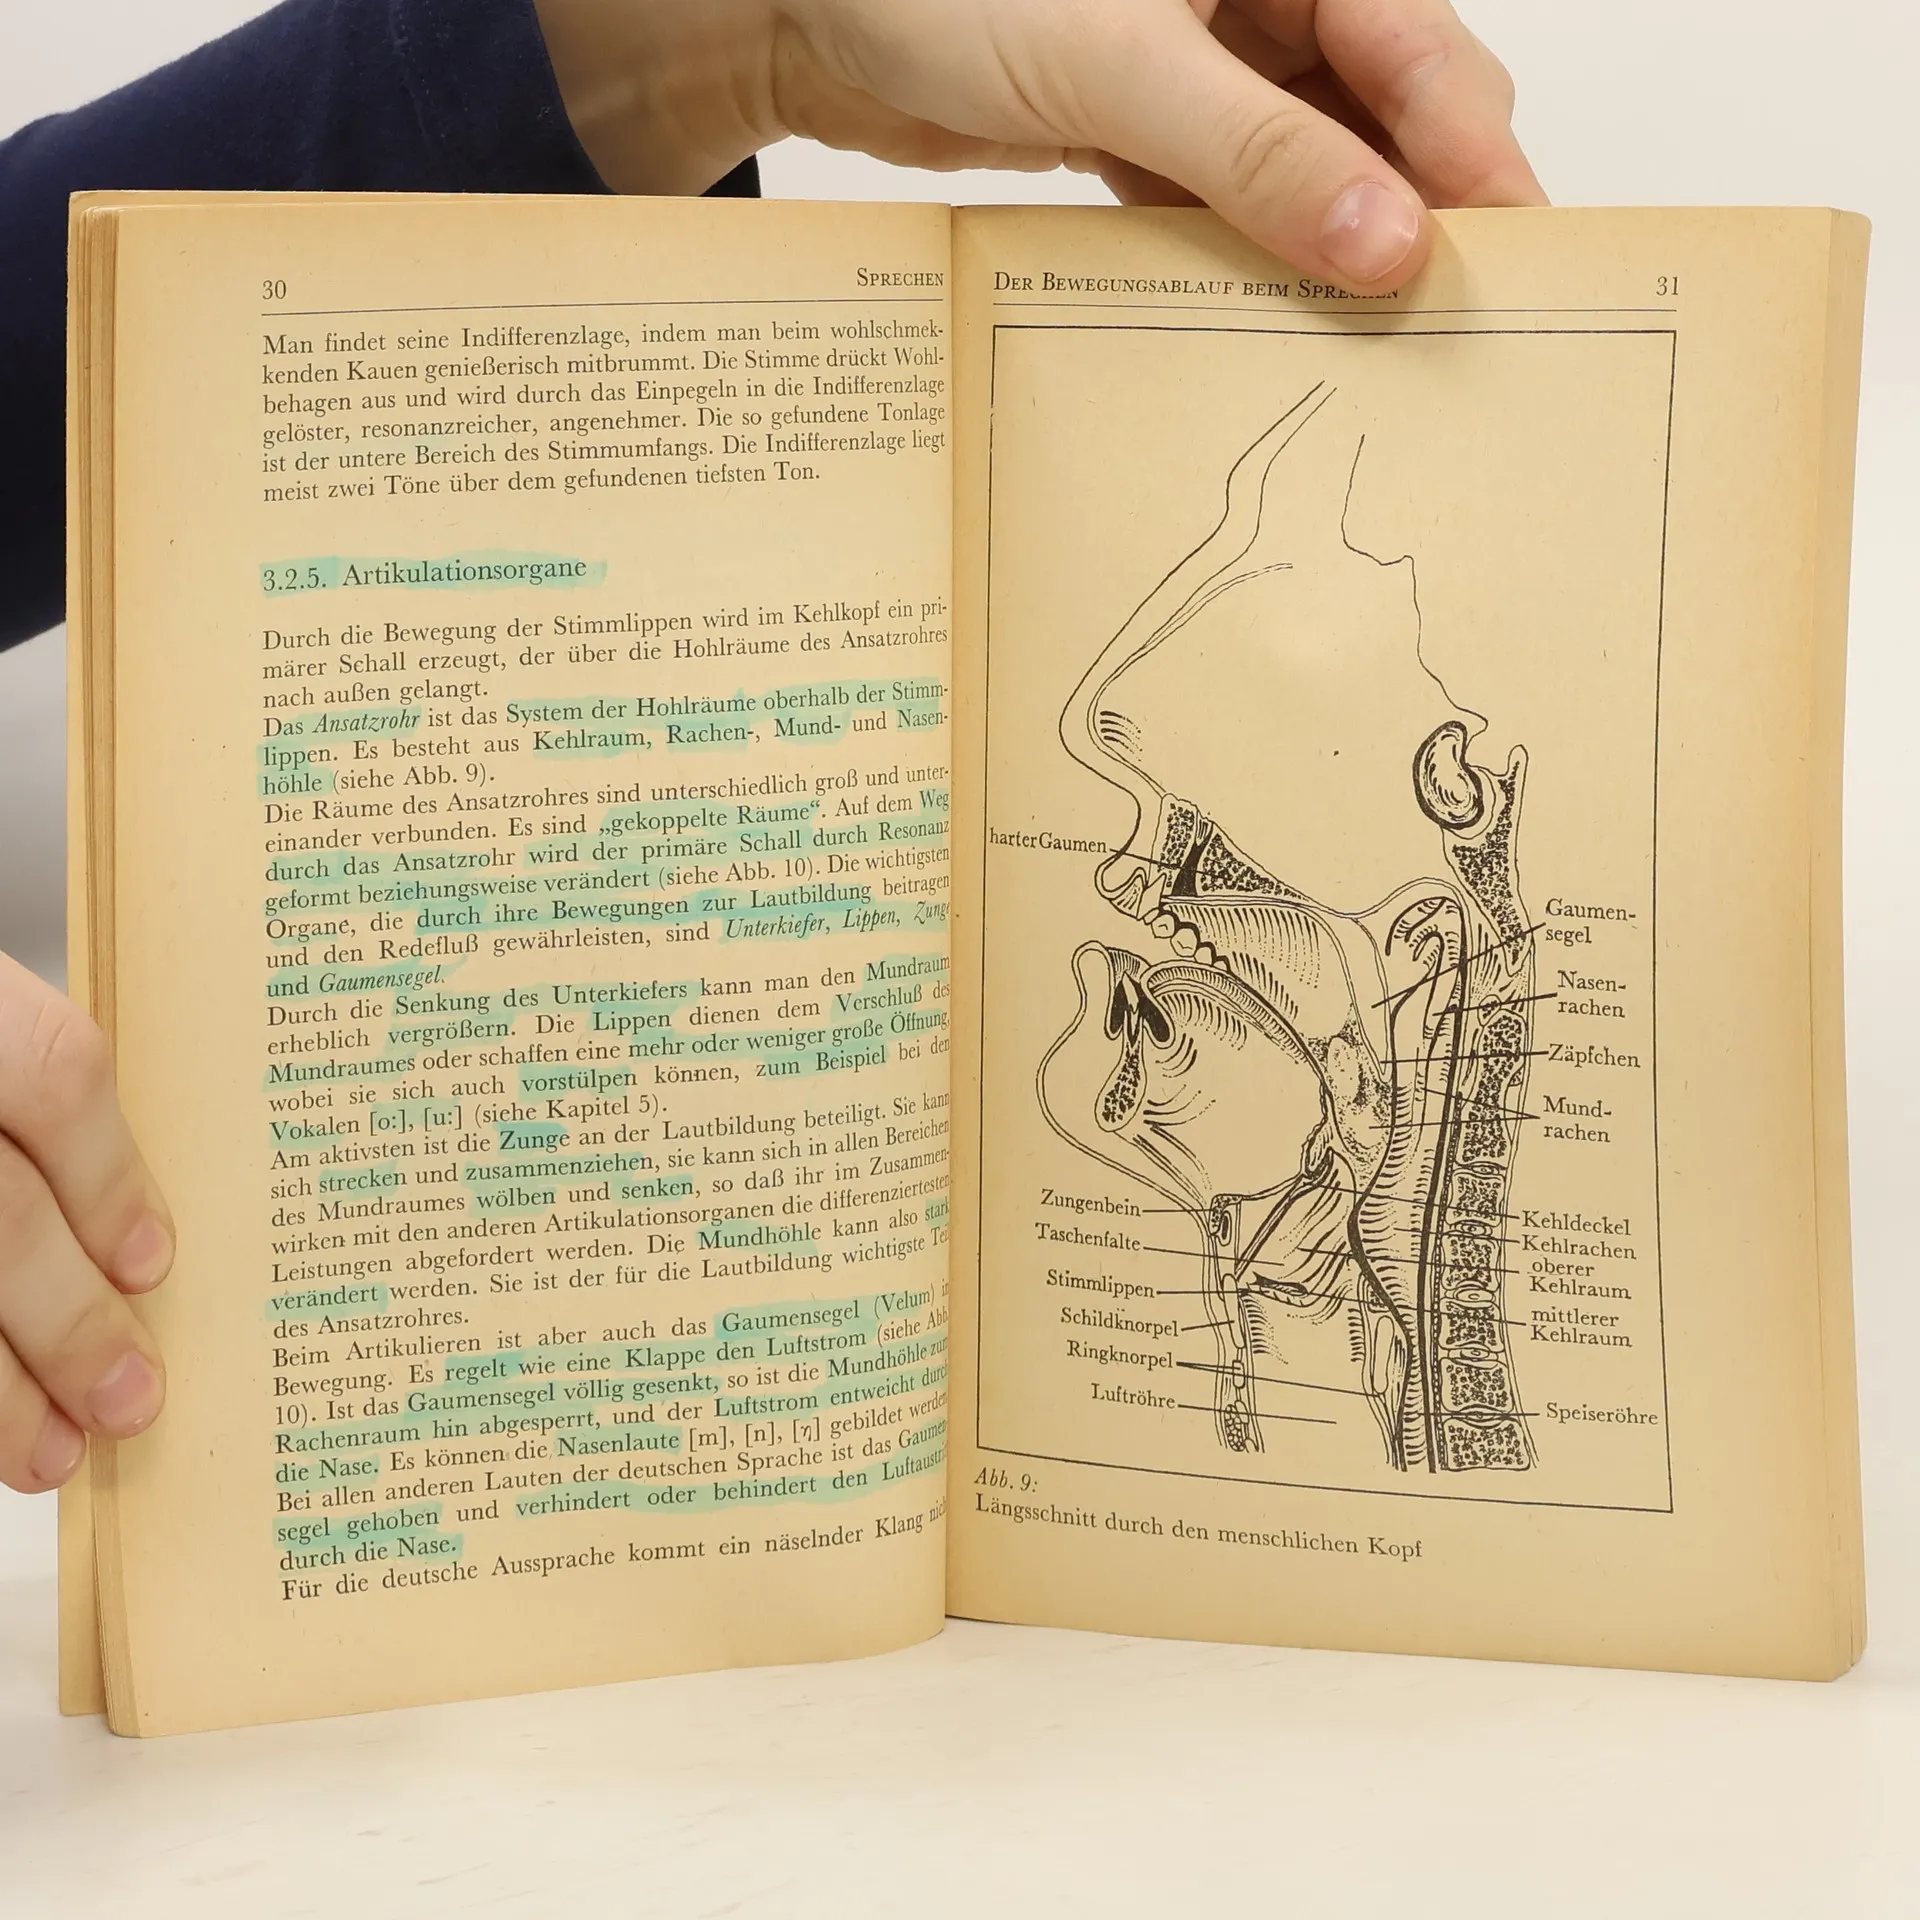 30 SPRECHEN
Man findet seine Indifferenzlage, indem man beim wohlschmek-
kenden Kauen genießerisch mitbrummt. Die Stimme drückt Wohl-
behagen aus und wird durch das Einpegeln in die Indifferenzlage
gelöster, resonanzreicher, angenehmer. Die so gefundene Tonlage
ist der untere Bereich des Stimmumfangs. Die Indifferenzlage liegt
meist zwei Töne über dem gefundenen tiefsten Ton.
3.2.5. Artikulationsorgane
Durch die Bewegung der Stimmlippen wird im Kehlkopf ein pri-
märer Schall erzeugt, der über die Hohlräume des Ansatzrohres
nach außen gelangt.
Das Ansatzrohr ist das System der Hohlräume oberhalb der Stimm-
lippen. Es besteht aus Kehlraum, Rachen-, Mund- und Nasen-
höhle (siehe Abb. 9).
Die Räume des Ansatzrohres sind unterschiedlich groß und unter-
einander verbunden. Es sind „gekoppelte Räume“. Auf dem Weg
durch das Ansatzrohr wird der primäre Schall durch Resonanz
geformt beziehungsweise verändert (siehe Abb. 10). Die wichtigsten
Organe, die durch ihre Bewegungen zur Lautbildung beitragen
und den Redefluß gewährleisten, sind Unterkiefer, Lippen, Zunge
und Gaumensegel.
Durch die Senkung des Unterkiefers kann man den Mundraum
erheblich vergrößern. Die Lippen dienen dem Verschluß des
Mundraumes oder schaffen eine mehr oder weniger große Öffnung,
wobei sie sich auch vorstülpen können, zum Beispiel bei den
Vokalen [o:], [u:] (siehe Kapitel 5).
Am aktivsten ist die Zunge an der Lautbildung beteiligt. Sie kann
sich strecken und zusammenziehen, sie kann sich in allen Bereichen
des Mundraumes wölben und senken, so daß ihr im Zusammen-
wirken mit den anderen Artikulationsorganen die differenziertesten
Leistungen abgefordert werden. Die Mundhöhle kann also stark
verändert werden. Sie ist der für die Lautbildung wichtigste Teil
des Ansatzrohres.
Beim Artikulieren ist aber auch das Gaumensegel (Velum) in
Bewegung. Es regelt wie eine Klappe den Luftstrom (siehe Abb.
10). Ist das Gaumensegel völlig gesenkt, so ist die Mundhöhle zum
Rachenraum hin abgesperrt, und der Luftstrom entweicht durch
die Nase. Es können die Nasenlaute [m], [n], [η] gebildet werden
Bei allen anderen Lauten der deutschen Sprache ist das Gaumen-
segel gehoben und verhindert oder behindert den Luftaustri
durch die Nase.
Für die deutsche Aussprache kommt ein näselnder Klang nich
DER BEWEGUNGSABLAUF BEIM SPRECHEN 31
harter Gaumen
Gaumen-
segel
Nasen-
rachen
Zäpfchen
Mund-
rachen
Zungenbein
Taschenfalte
Stimmlippen
Schildknorpel
Ringknorpel
Luftröhre
Kehldeckel
Kehlrachen
oberer
Kehlraum
mittlerer
Kehlraum
Speiseröhre
Abb. 9:
Längsschnitt durch den menschlichen Kopf